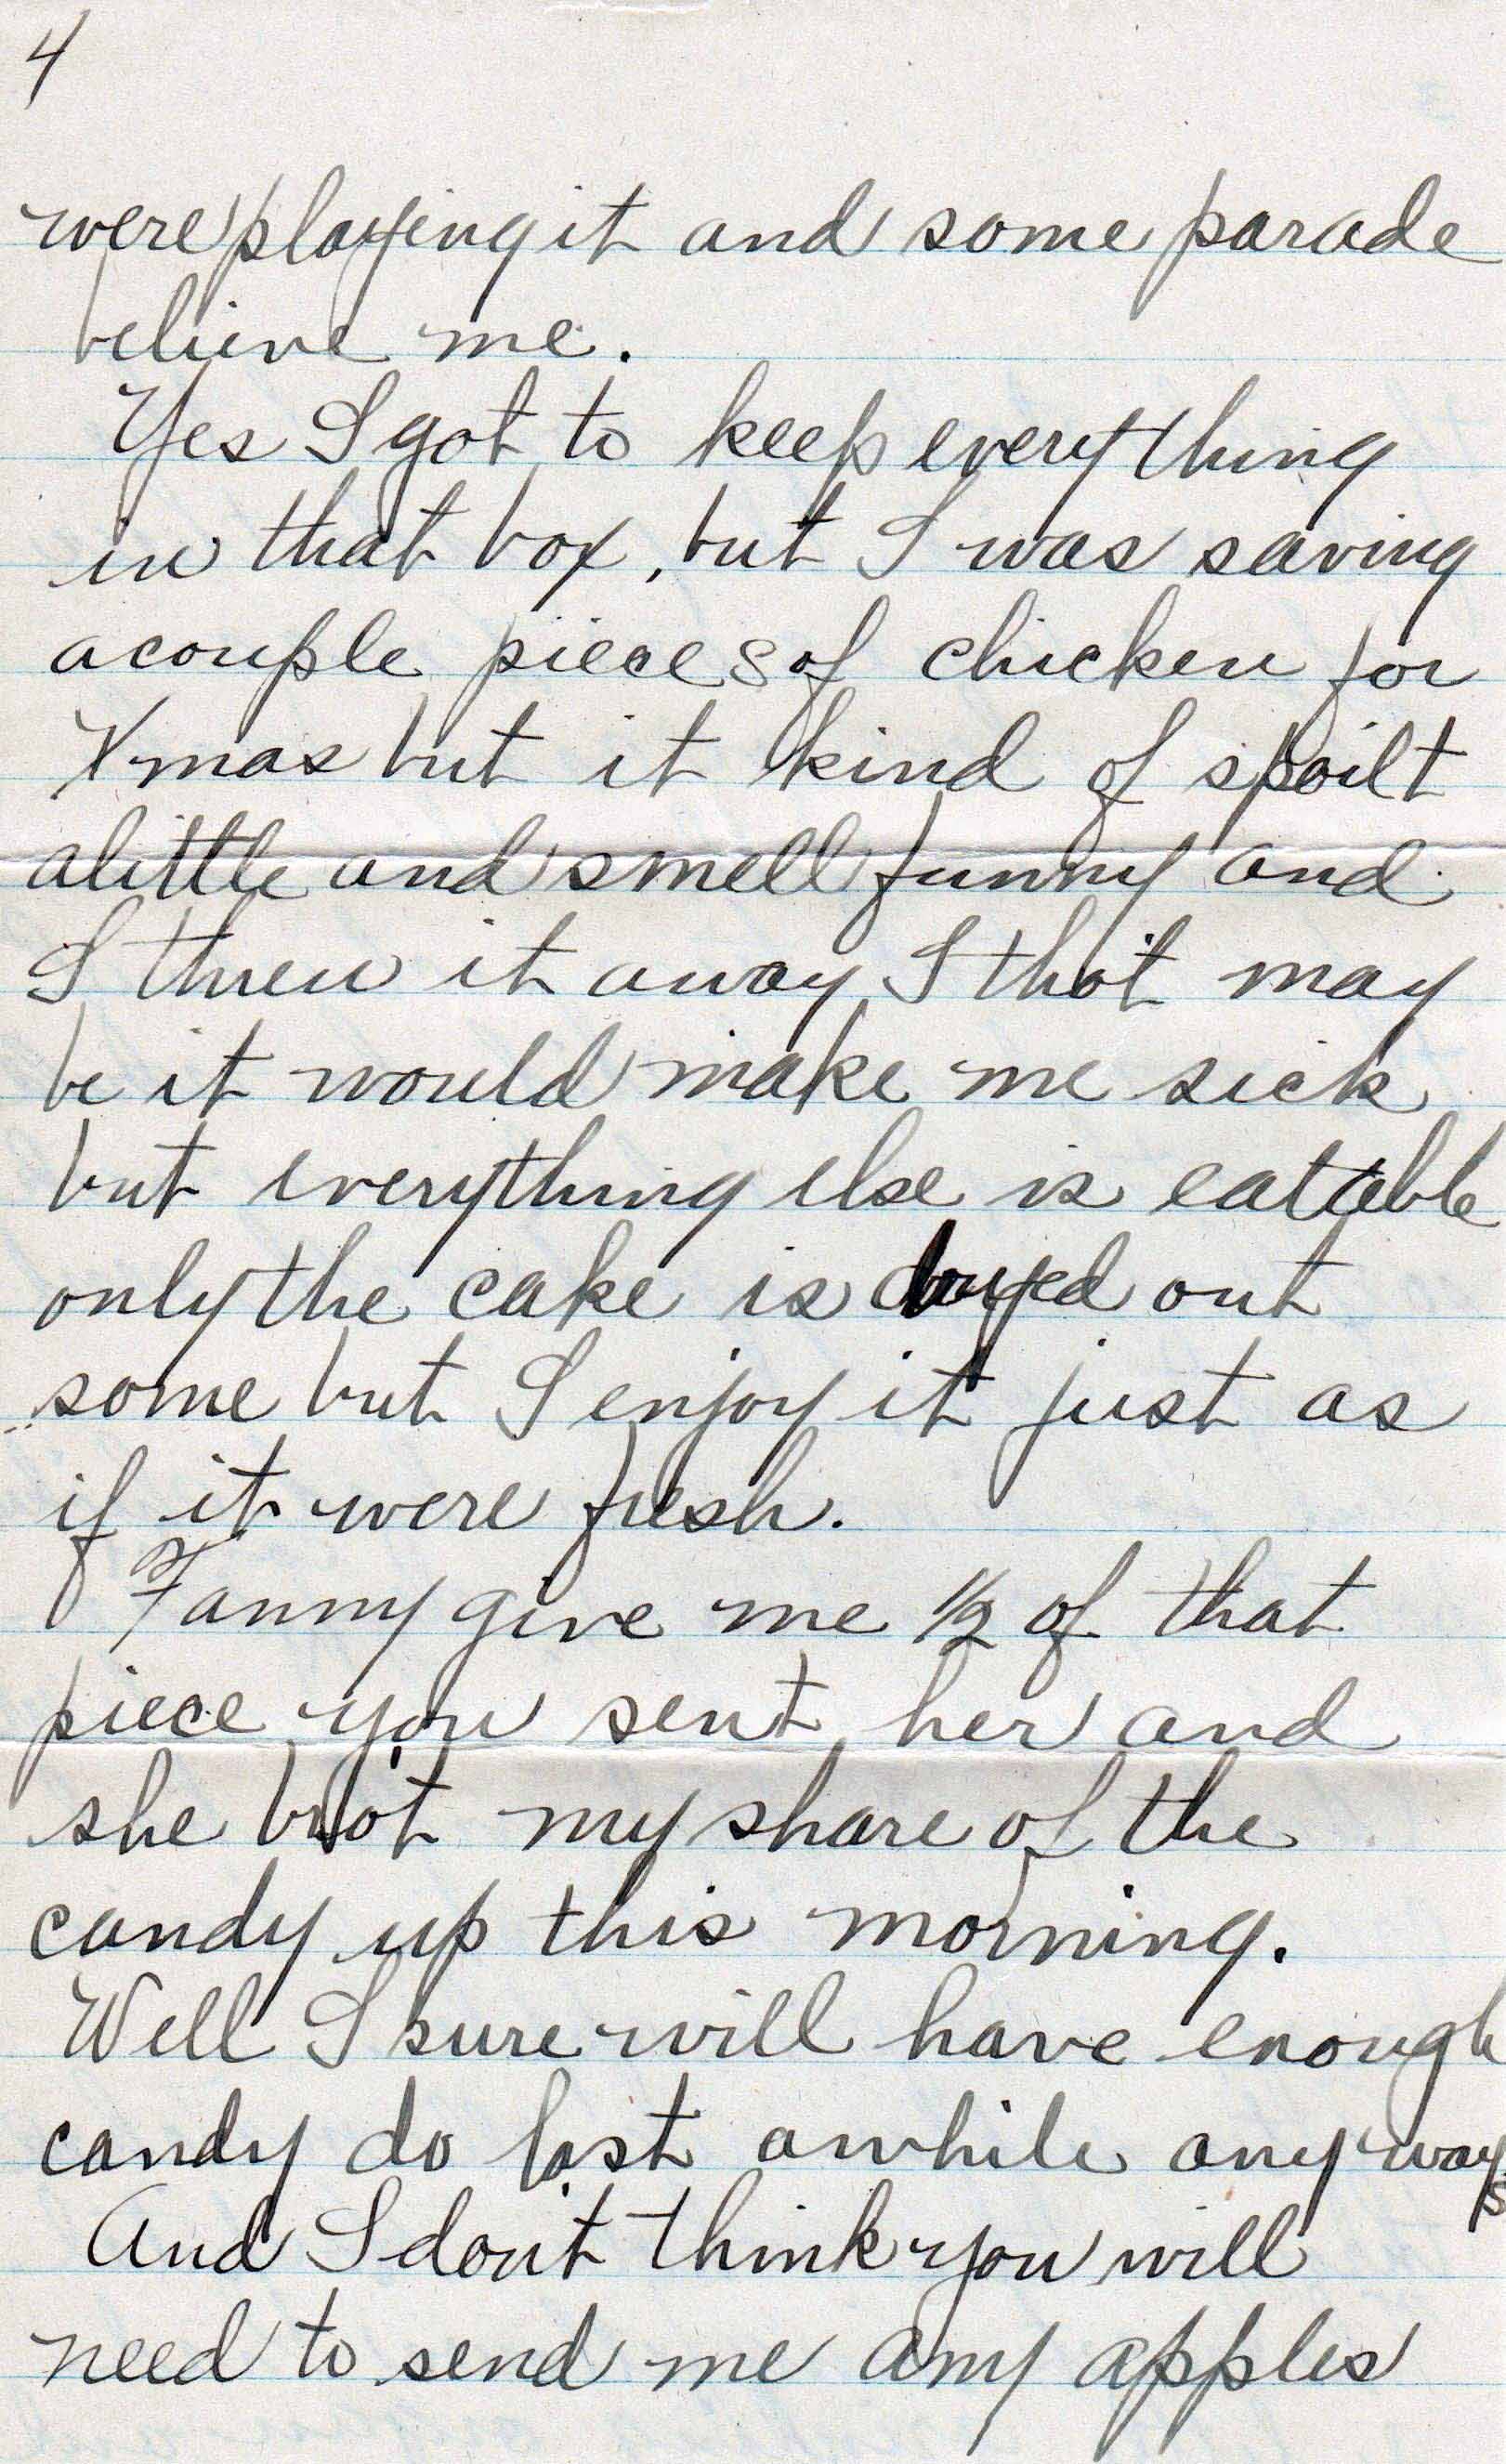 4
were playing it and some parade
believe me.
Yes I got to keep everything
in that box, but I was saving
a couple pieces of chicken for
Xmas but it kind of spoilt
a little and smell funny and
I threw it away I thot may
be it would make me sick
but everything else is eatable
only the cake is dryed out
some but I enjoy it just as
if it were fresh.
Fanny give me 1/2 of that
piece you sent her and
she brot my share of the
candy up this morning.
Well I sure will have enough
candy do last awhile any ways
And I don't think you will
need to send me any apples